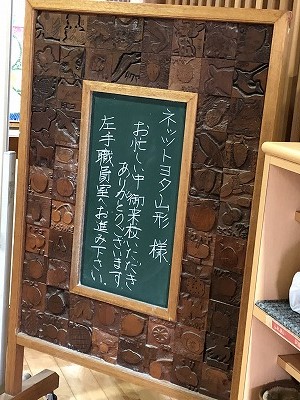 ネットヨタ山形 様
お忙しい中御来校いただき
ありがとうございます
左手職員室へお進み下さい。